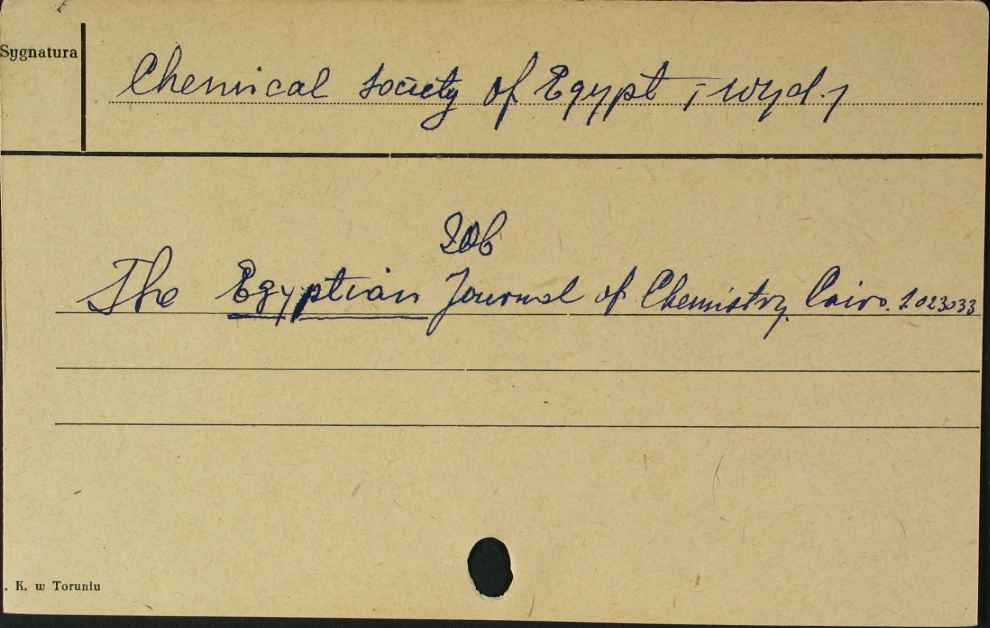 Sygnatura
Chemical Society of Egypt, wyd.,
Zob
The Egyptian Journal of Chemistry. Cairo. 1023033
. K. w Toruniu